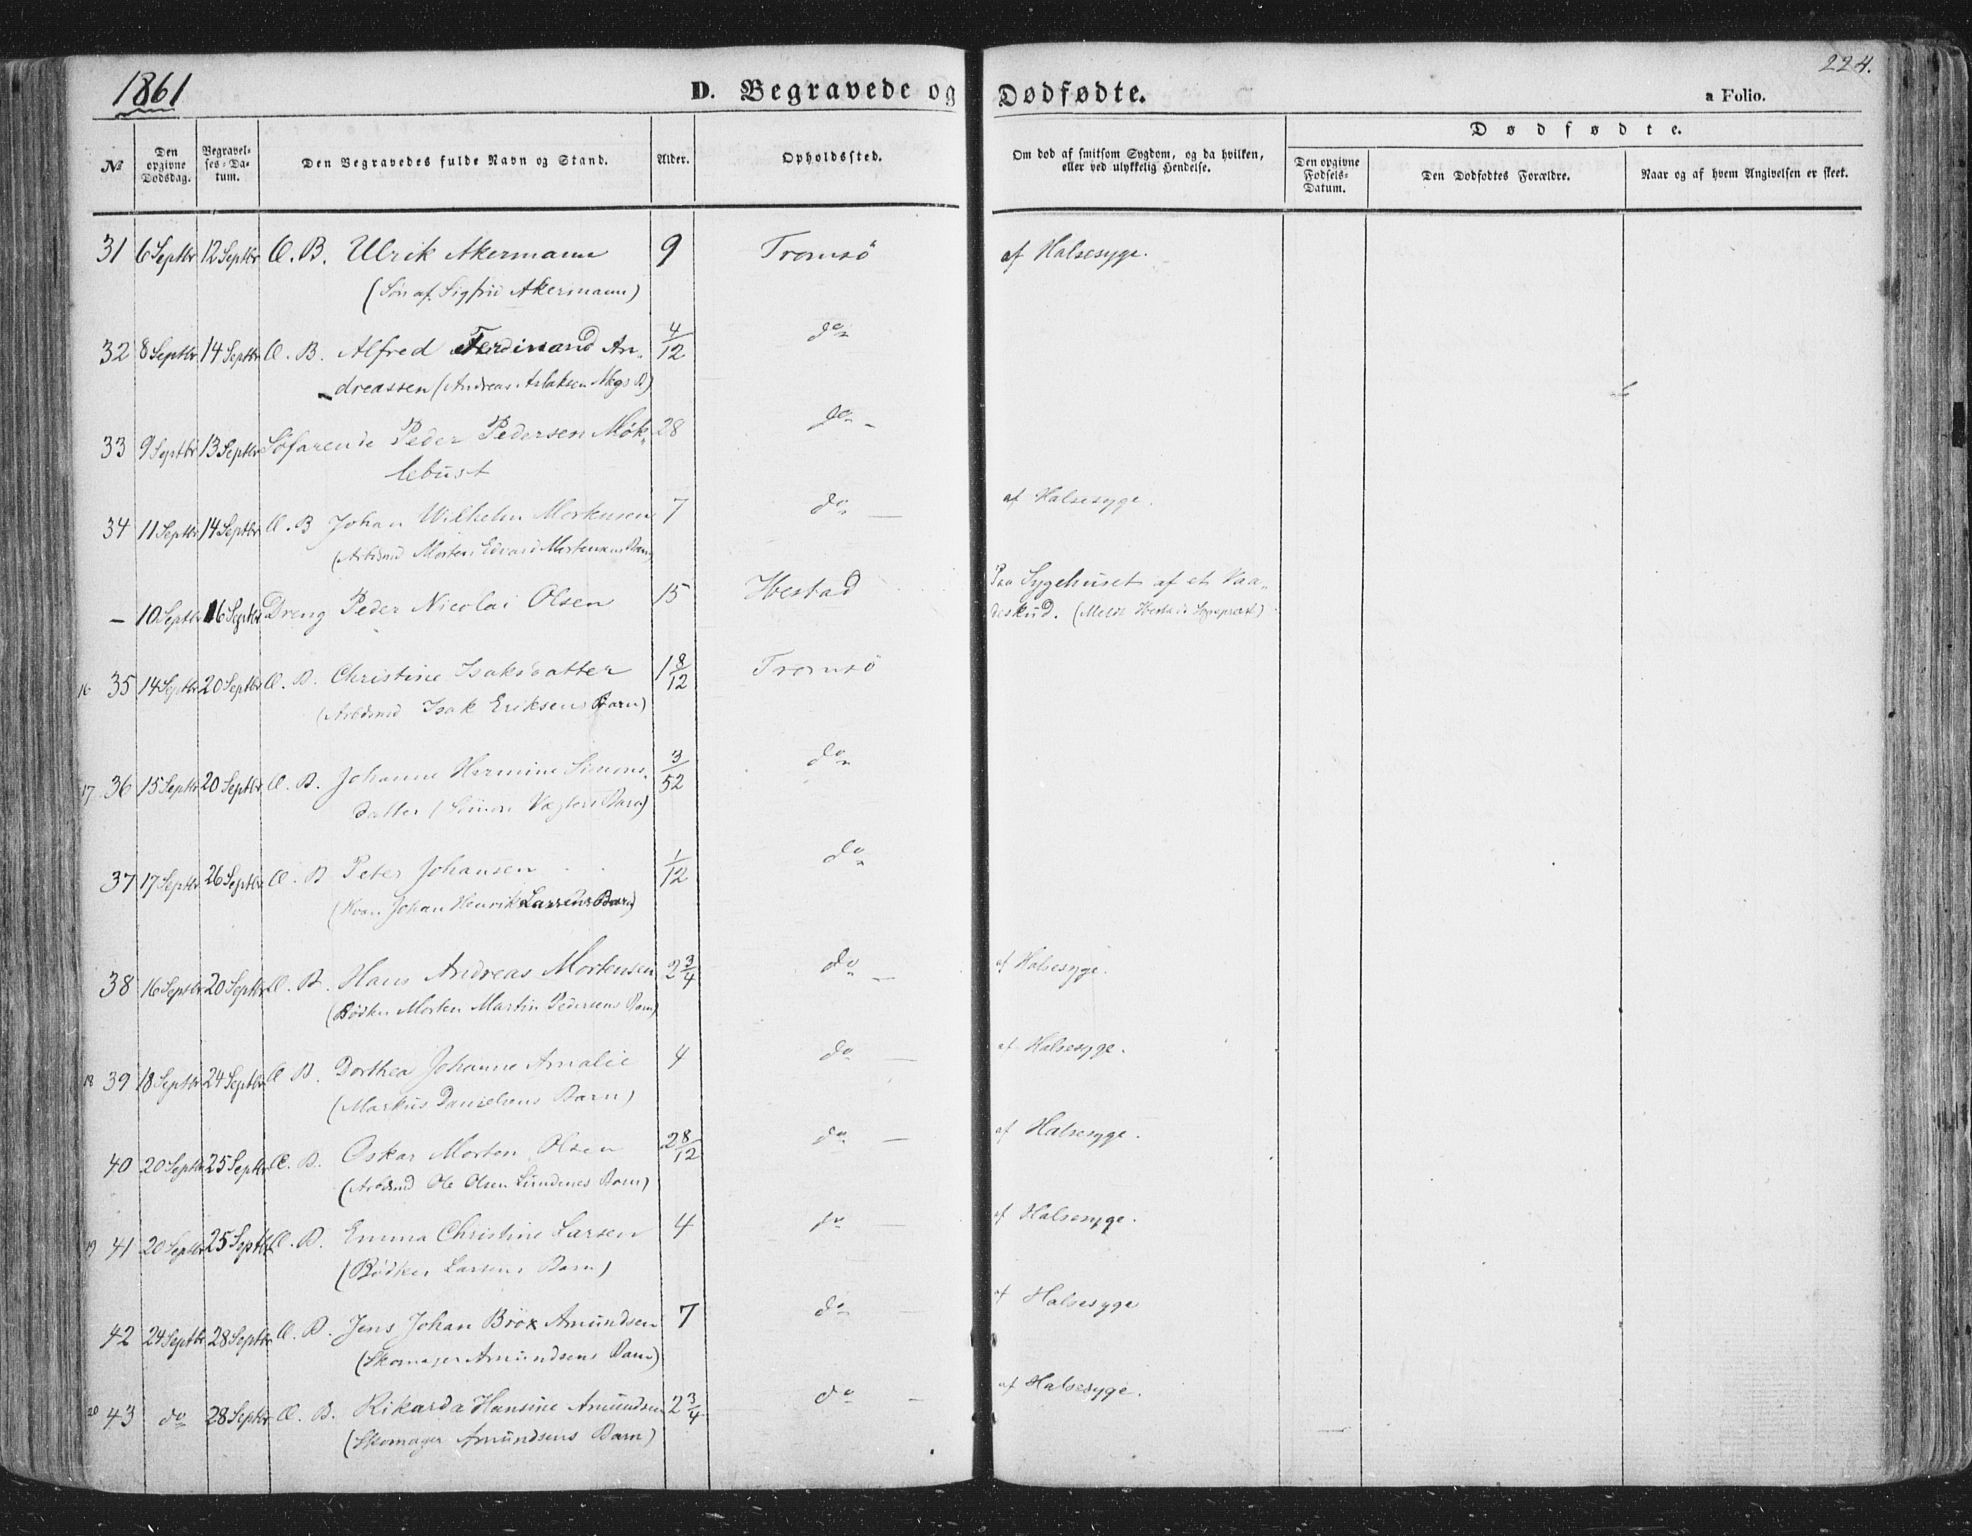 1861
D. Begravede og Dødfødte.
224.
a Folio.
No
Den opgivne Dødsdag.
Begravelses-Datum.
Den Begravedes fulde Navn og Stand.
Alder.
Opholdssted.
Om død af smitsom Sygdom, og da hvilken,
eller ved ulykkelig Hendelse.
Dødfødte.
Den opgivne Fødsels-Datum.
Den Dødfødtes Forældre.
Naar og af hvem Angivelsen er skeet.
31 6 Septbr 12 Septbr U. B. Ulrik Akermann 9 Tromsö af Halsesyge.
(Sön af Sigfrid Akermann)
32 8 Septbr 14 Septbr U. B. Alfred Ferdinand An- 4/12 do
dreassen (Andreas Aslaksen B)
33 9 Septbr 13 Septbr Söfarende Peder Pedersen Mök- 28 do -
lebust
34 11 Septbr 14 Septbr U. B Johan Wilhelm Mortensen 7 do - af Halsesyge.
(Arbdsmd Morten Edvard Mortensens Barn)
- 10 Septbr 16 Septbr Dreng Peder Nicolai Olsen 15 Ibestad Paa Sygehuset af et Vaa-
deskud. (Meldt Ibestads Sognepræst)
16 35 14 Septbr 20 Septbr U. B. Christine Isaksdatter 1 8/12 Tromsö
(Arbdsmd Isak Eriksens Barn)
17 36 15 Septbr 20 Septbr U. B. Johanne Hermine Simons- 3/52 do
datter (Simon Vægters Barn)
37 17 Septbr 26 Septbr U. B Peter Johansen 1/12 do
(Kvæn Johan Henrik Larsens Barn)
38 16 Septbr 20 Septbr U. B. Hans Andreas Mortensen 2 3/4 do - af Halsesyge.
(Bödker Morten Martin Pedersens Barn)
18 39 18 Septbr 24 Septbr U B. Dorthea Johanne Amalie 4 do - af Halsesyge.
(Markus Danielsens Barn)
40 20 Septbr 25 Septbr U. B. Oskar Morten Olsen 2 8/12 do - af Halsesyge.
(Arbdsmd Ole Olsen Lundenes Barn)
19 41 20 Septbr 25 Septbr U. B. Emma Christine Larsen 4 do - af Halsesyge.
(Bödker Larsens Barn)
42 24 Septbr 28 Septbr U. B. Jens Johan Brox Amundsen 7 do - af Halsesyge
(Skomager Amundsens Barn)
20 43 do 28 Septbr U. B. Rikarda Hansine Amundsen 2 3/4 do - af Halsesyge.
(Skomager Amundsens Barn)